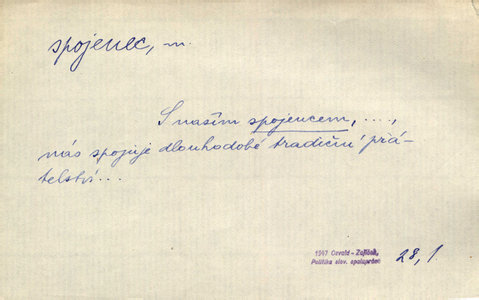 spojenec, m.
S naším spojencem, ....,
nás spojuje dlouhodobé tradiční přá-
telství...
1947 Osvald - Zajíček,
Politika slov. spolupráce
28, 1